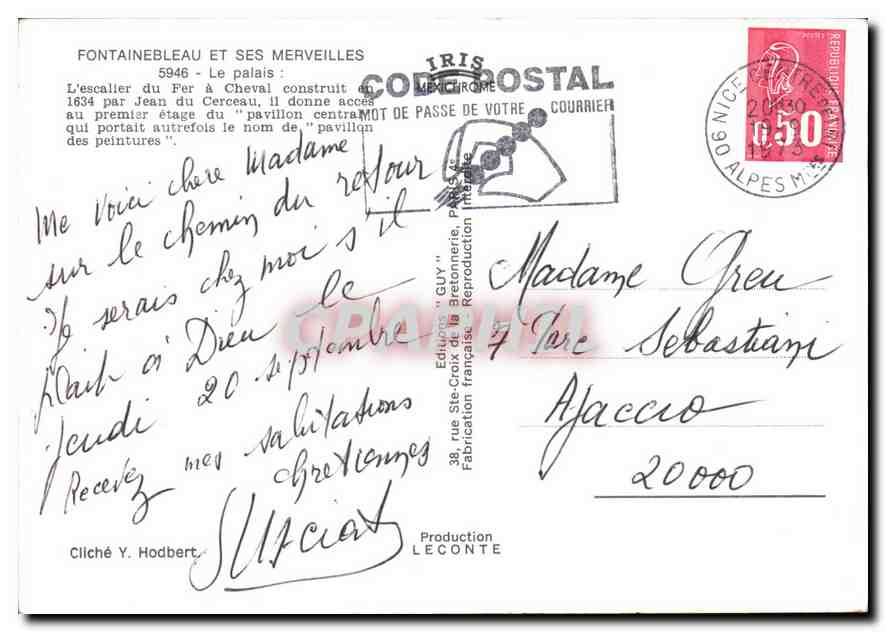 FONTAINEBLEAU ET SES MERVEILLES
5946 - Le palais :
L'escalier du Fer à Cheval construit en
1634 par Jean du Cerceau, il donne accès
au premier étage du "pavillon central"
qui portait autrefois le nom de "pavillon
des peintures".
IRIS
MEXICHROME
CODE POSTAL
MOT DE PASSE DE VOTRE COURRIER
REPUBLIQUE FRANÇAISE
POSTES
0,50
06 NICE CENTRE
20H30
1973
ALPES Mmes
Me voici chere Madame
sur le chemin du retour
Je serais chez moi s'il
plait à Dieu le
jeudi 20 septembre
Recevez mes salutations
chretiennes
Madame Greu
7 Parc Sebastiani
Ajaccio
20000
CPARAMA
Editions "GUY"
38, rue Ste-Croix de la Bretonnerie, PARIS 4e
Fabrication française - Reproduction interdite
Cliché Y. Hodbert
Production
LECONTE